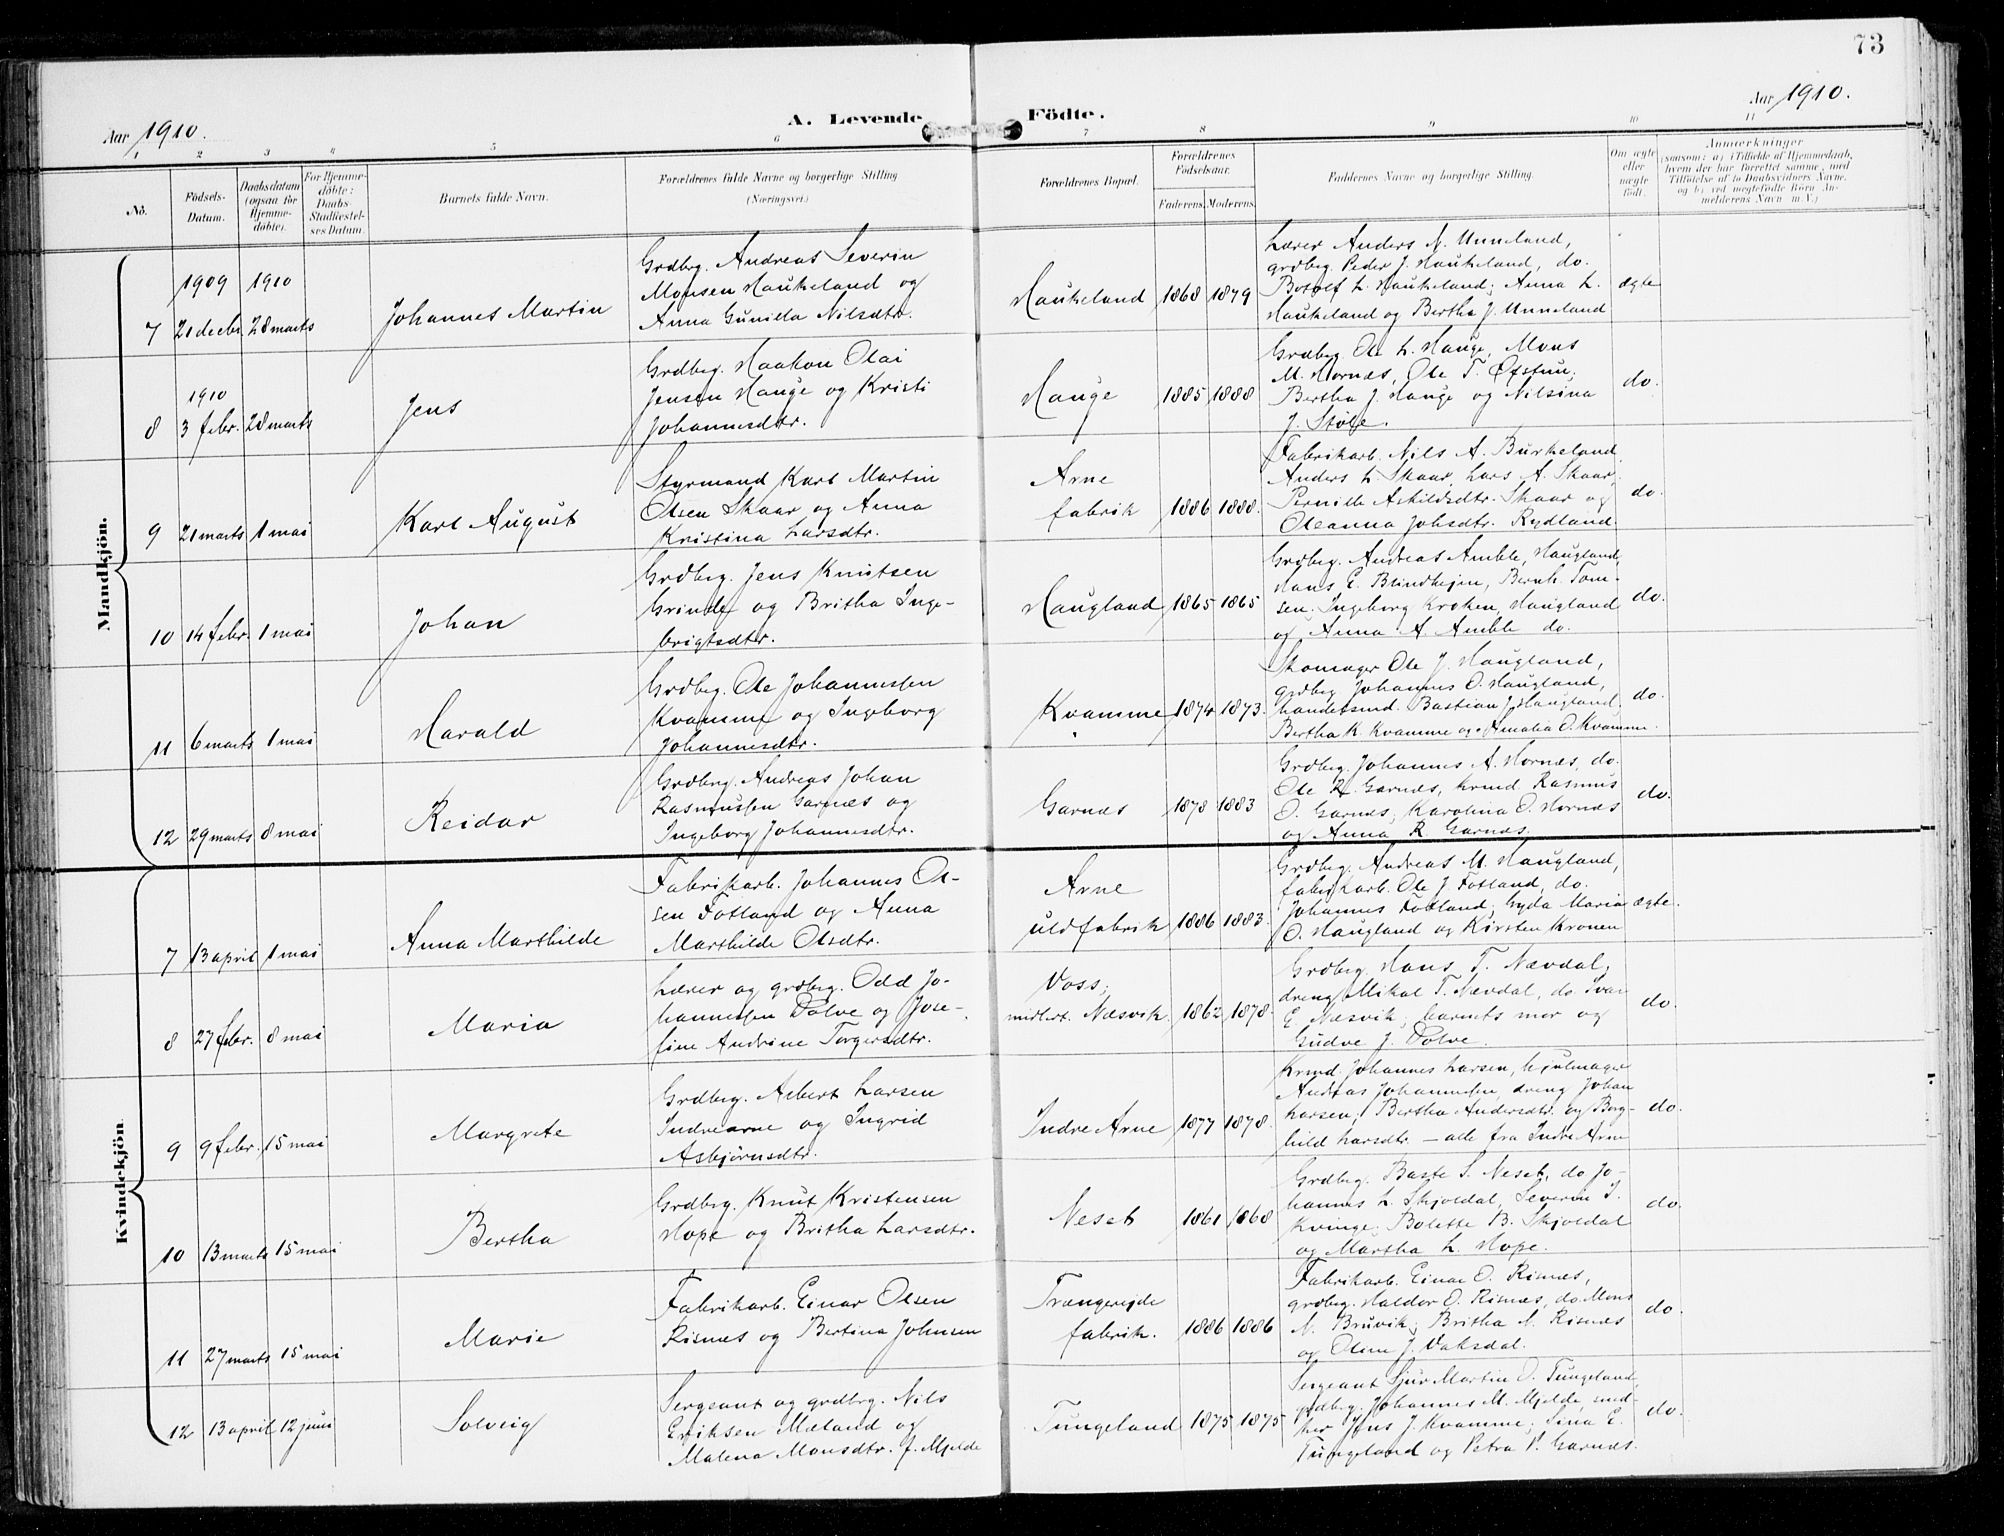 73
Aar 1910.
A. Levende Födte.
Aar 1910.
1 2 3 4 5 6 7 8 9 10 11
No.
Födsels-
Datum.
Daabsdatum
(ogsaa for
Hjemme-
döbte).
For Hjemme-
döbte:
Daabs-
Stadfæstel-
ses Datum.
Barnets fulde Navn.
Forældrenes fulde Navne og borgerlige Stilling
(Næringsvei.)
Forældrenes Bopæl.
Forældrenes
Födselsaar.
Faderens. Moderens.
Faddernes Navne og borgerlige Stilling.
Om ægte
eller
uægte
födt.
Anmærkninger
(saasom: a) i Tilfælde af Hjemmedaab,
hvem der har forrettet samme, med
Tilföielse af to Daabsvidners Navne,
og b) ved uægtefödte Börn An-
melderens Navn m. V.)
Mandkjön.
7
1909
21 decbr.
1910
28 marts
Johannes Martin
Grdbrg. Andreas Severin
Monsen Haukeland og
Anna Gunilla Nilsdtr.
Haukeland
1868 1879
Lærer Anders N. Unneland,
grdbrg. Peder J. Haukeland, do.
Botolf L. Haukeland; Anna L.
Haukeland og Bertha J. Unneland
ægte
8
1910
3 febr.
28 marts
Jens
Grdbrg. Haakon Olai
Jensen Hauge og Kristi
Johannesdtr.
Hauge
1885 1888
Grdbrg. Ole L. Hauge, Mons
M. Hornæs, Ole T. Øfstun;
Bertha J. Hauge og Nilsina
J. Støle.
do.
9
21 marts
1 mai
Karl August
Styrmand Karl Martin
Olsen Skaar og Anna
Kristina Larsdtr.
Arne
fabrik
1886 1888.
Fabrikarb. Nils A. Burkeland,
Anders L. Skaar, Lars A. Skaar;
Pernille Askildsdtr. Skaar og
Oleanna Johsdtr. Rydland.
do.
10
14 febr.
1 mai
Johan
Grdbrg. Jens Knutsen
Grinde og Britha Inge-
brigtsdtr.
Haugland
1865 1865
Grdbrg. Andreas Amble, Haugland,
Hans E. Blindhejm, Bernh. Tom-
sen. Ingeborg Kroken, Haugland
og Anna A. Amble do.
do.
11
6 marts
1 mai
Harald
Grdbrg. Ole Johannessen
Kvamme og Ingeborg
Johannesdtr.
Kvamme
1874 1873.
Skomager Ole J. Haugland,
grdbrg. Johannes O. Haugland,
handelsmd. Bastian J. Haugland,
Bertha K. Kvamme og Amalia O. Kvamme.
do.
12
29 marts
8 mai
Reidar
Grdbrg. Andreas Johan
Rasmussen Garnæs og
Ingeborg Johannesdtr.
Garnæs
1878 1883
Grdbrg. Johannes A. Hornæs, do.
Ole R. Garnæs, krmd Rasmus
O. Garnæs; Karolina O. Hornæs
og Anna R Garnæs.
do.
Kvindekjön.
7
13 april
1 mai
Anna Marthilde
Fabrikarb. Johannes Ol-
sen Fotland og Anna
Marthilde Olsdtr.
Arne
uldfabrik
1886 1883.
Grdbrg. Andreas M. Haugland,
fabrikarb. Ole J. Fotland, do.
Johannes Fotland; Gyda Maria
O. Haugland og Kirsten Kronen
ægte.
8
27 febr.
8 mai
Maria
Lærer og grdbrg. Odd Jo-
hannessen Dolve og Jose-
fine Andrine Torgersdtr.
Voss;
midlert. Næsvik.
1862 1878.
Grdbrg. Hans T. Nævdal,
dreng Mikal T. Nævdal, do Ivar
E. Næsvik; barnets mor og
Gudve J. Dolve.
do.
9
9 febr.
15 mai
Margrete
Grdbrg. Albert Larsen
Indrearne og Ingrid
Asbjørnsdtr.
Indre Arne
1877 1878.
Krmd. Johannes Larsen, hjulmager
Andreas Johannessen, dreng Johan
Larsen; Bertha Andersdtr. og Borg-
hild Larsdtr. – alle fra Indre Arne
do.
10
13 marts
15 mai
Bertha
Grdbrg. Knut Kristensen
Hope og Britha Larsdtr.
Neset
1861 1868
Grdbrg. Baste S. Neset, do Jo-
hannes L. Skjoldal, Severin I.
Kvinge. Bolette B. Skjoldal
og Martha L. Hope.
do.
11
27 marts
15 mai
Marie
Fabrikarb. Einar Olsen
Risnæs og Bertina Johnsen
Trængereide
fabrik.
1886 1886
Fabrikarb. Einar O. Risnæs,
grdbrg. Haldor O. Risnæs, do. Mons
N. Bruvik; Britha N. Risnæs
og Oline J. Vaksdal.
do.
12
13 april
12 juni
Solveig
Sergeant og grdbrg. Nils
Eriksen Mæland og
Malena Monsdtr. f. Mjelde
Tungeland
1875 1875
Sergeant Sjur Martin O. Tungeland,
grdbrg. Johannes M. Mjelde, sned-
ker Jens J. Kvamme; Sina E.
Tungeland og Petra P. Garnæs.
do.